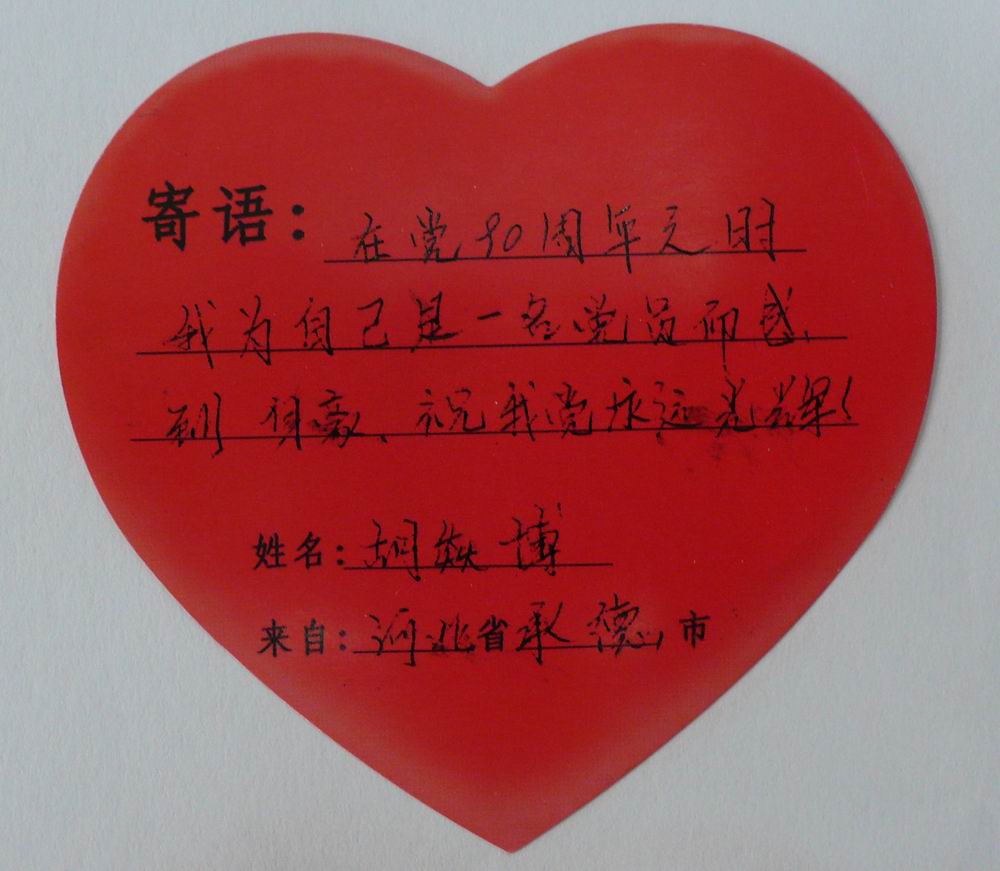 寄语：在党90周年之时
我为自己是一名党员而感
到自豪、祝我党永远光辉！
姓名：胡焱博
来自：河北省承德市